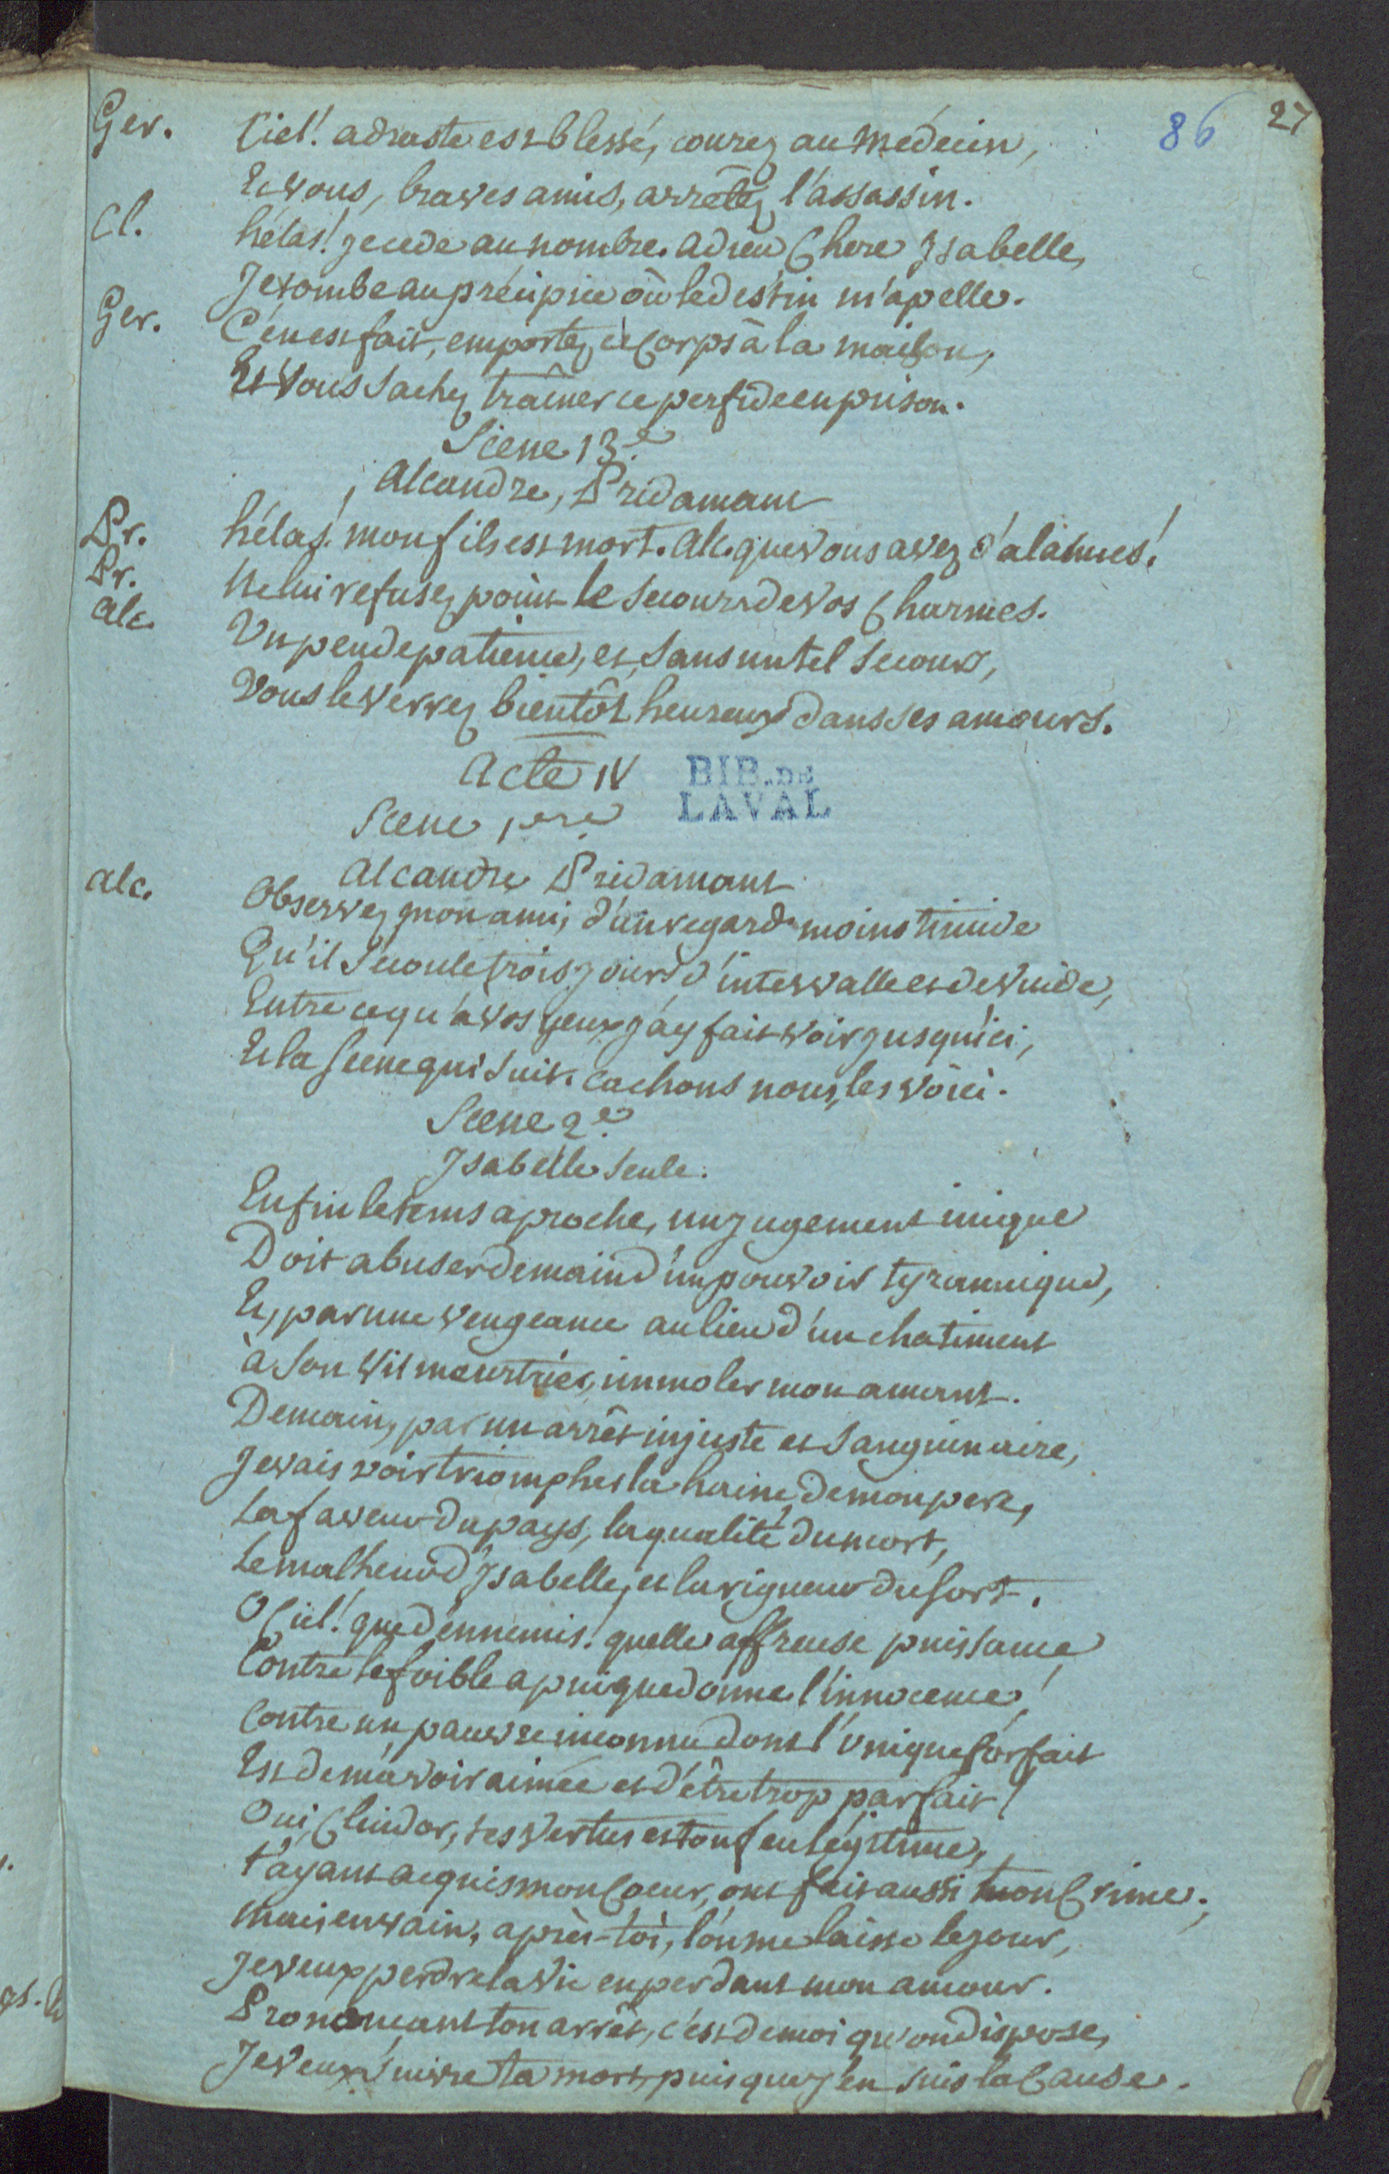 86 27
Ger. Ciel! adraste est blessé, courez au médecin,
Et vous, braves amis, arrêtez l'assassin.
Cl. hélas! je cede au nombre. adieu Chere Isabelle,
Je tombe au précipice où le destin m'apelle.
Ger. C'en est fait, emportez ce Corps à la maison,
Et Vous sachez traîner ce perfide en prison.
Scene 13.e
Alcandre, Pridamant
Pr. hélas! mon fils est mort. Alc. que vous avez d'alarmes!
Pr. Ne lui refusez point le secours de vos Charmes.
alc. Un peu de patience, et sans un tel secours,
Vous le verrez bientôt heureux dans ses amours.
Acte IV
BIB. DE
LAVAL
Scene 1.ere
Alcandre Pridamant
alc. Observez mon ami, d'un regard moins timide
Qu'il s'écoule trois jours d'intervalle et de vuide,
Entre ce qu'à vos yeux j'ay fait voir jusqu'ici,
Et la scene qui suit. Cachons nous, les voici.
Scene 2.e
Isabelle seule.
Enfin le tems aproche, un jugement inique
Doit abuser demain d'un pouvoir tyrannique,
Et, par une vengeance au lieu d'un chatiment
à son vil meurtrier, immoler mon amant.
Demain, par un arrêt injuste et sanguinaire,
Je vais voir triompher la haine de mon pere,
La faveur du pays, la qualité du mort,
Le malheur d'Isabelle, et la rigueur du sort.
O Ciel! que d'ennemis! quelle affreuse puissance
Contre le foible apui que donne l'innocence,
Contre un pauvre inconnu dont l'unique forfait
Est de m'avoir aimée et d'être trop parfait!
Oui, Clindor, tes vertus et ton feu légitime,
t'ayant acquis mon Coeur, ont fait aussi ton Crime;
Mais en vain, après toi, l'on me laisse le jour,
Je veux perdre la vie en perdant mon amour.
Prononçant ton arrêt, c'est de moi qu'on dispose,
Je veux suivre ta mort, puisque j'en suis la Cause.